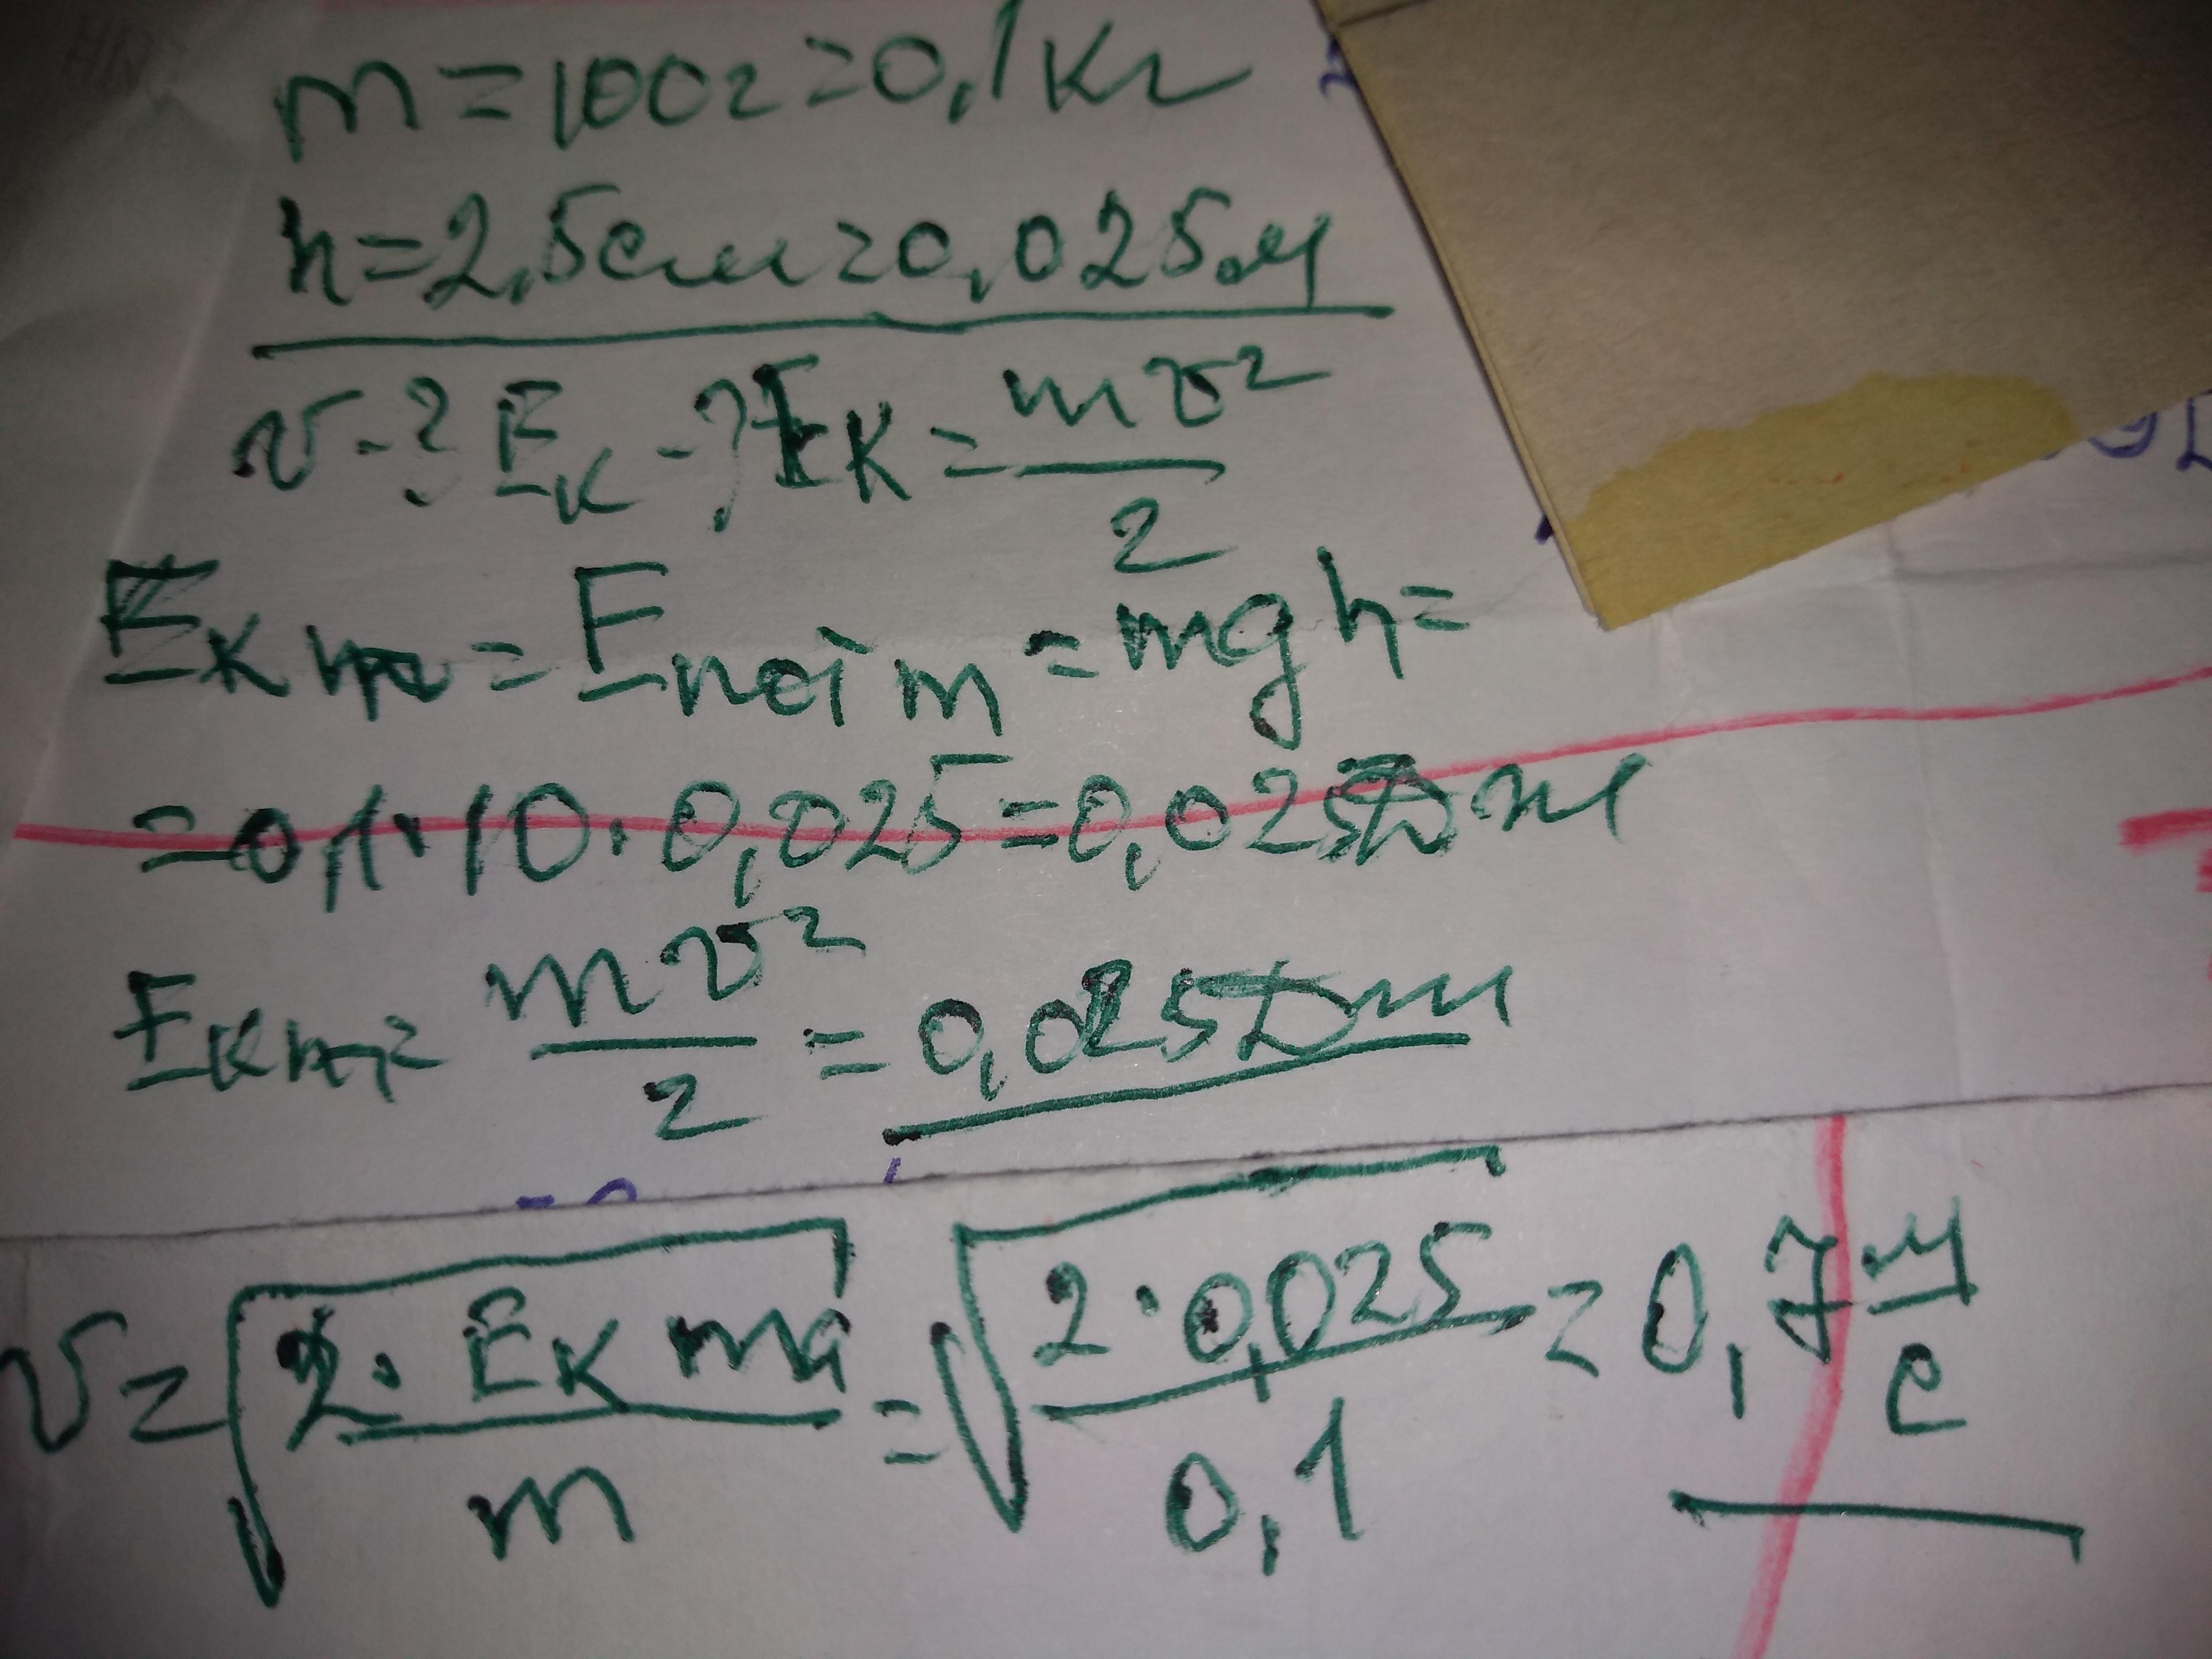 m=100г=0,1кг
h=2,5см=0,025м
v-? Eк-? Eк = mv²/2
Eк = Eпот m = mgh=
=0,1·10·0,025=0,025Дж
Eк = mv²/2 = 0,025Дж
v = √(2·Eк ma/m) = √(2·0,025/0,1) = 0,7 м/с